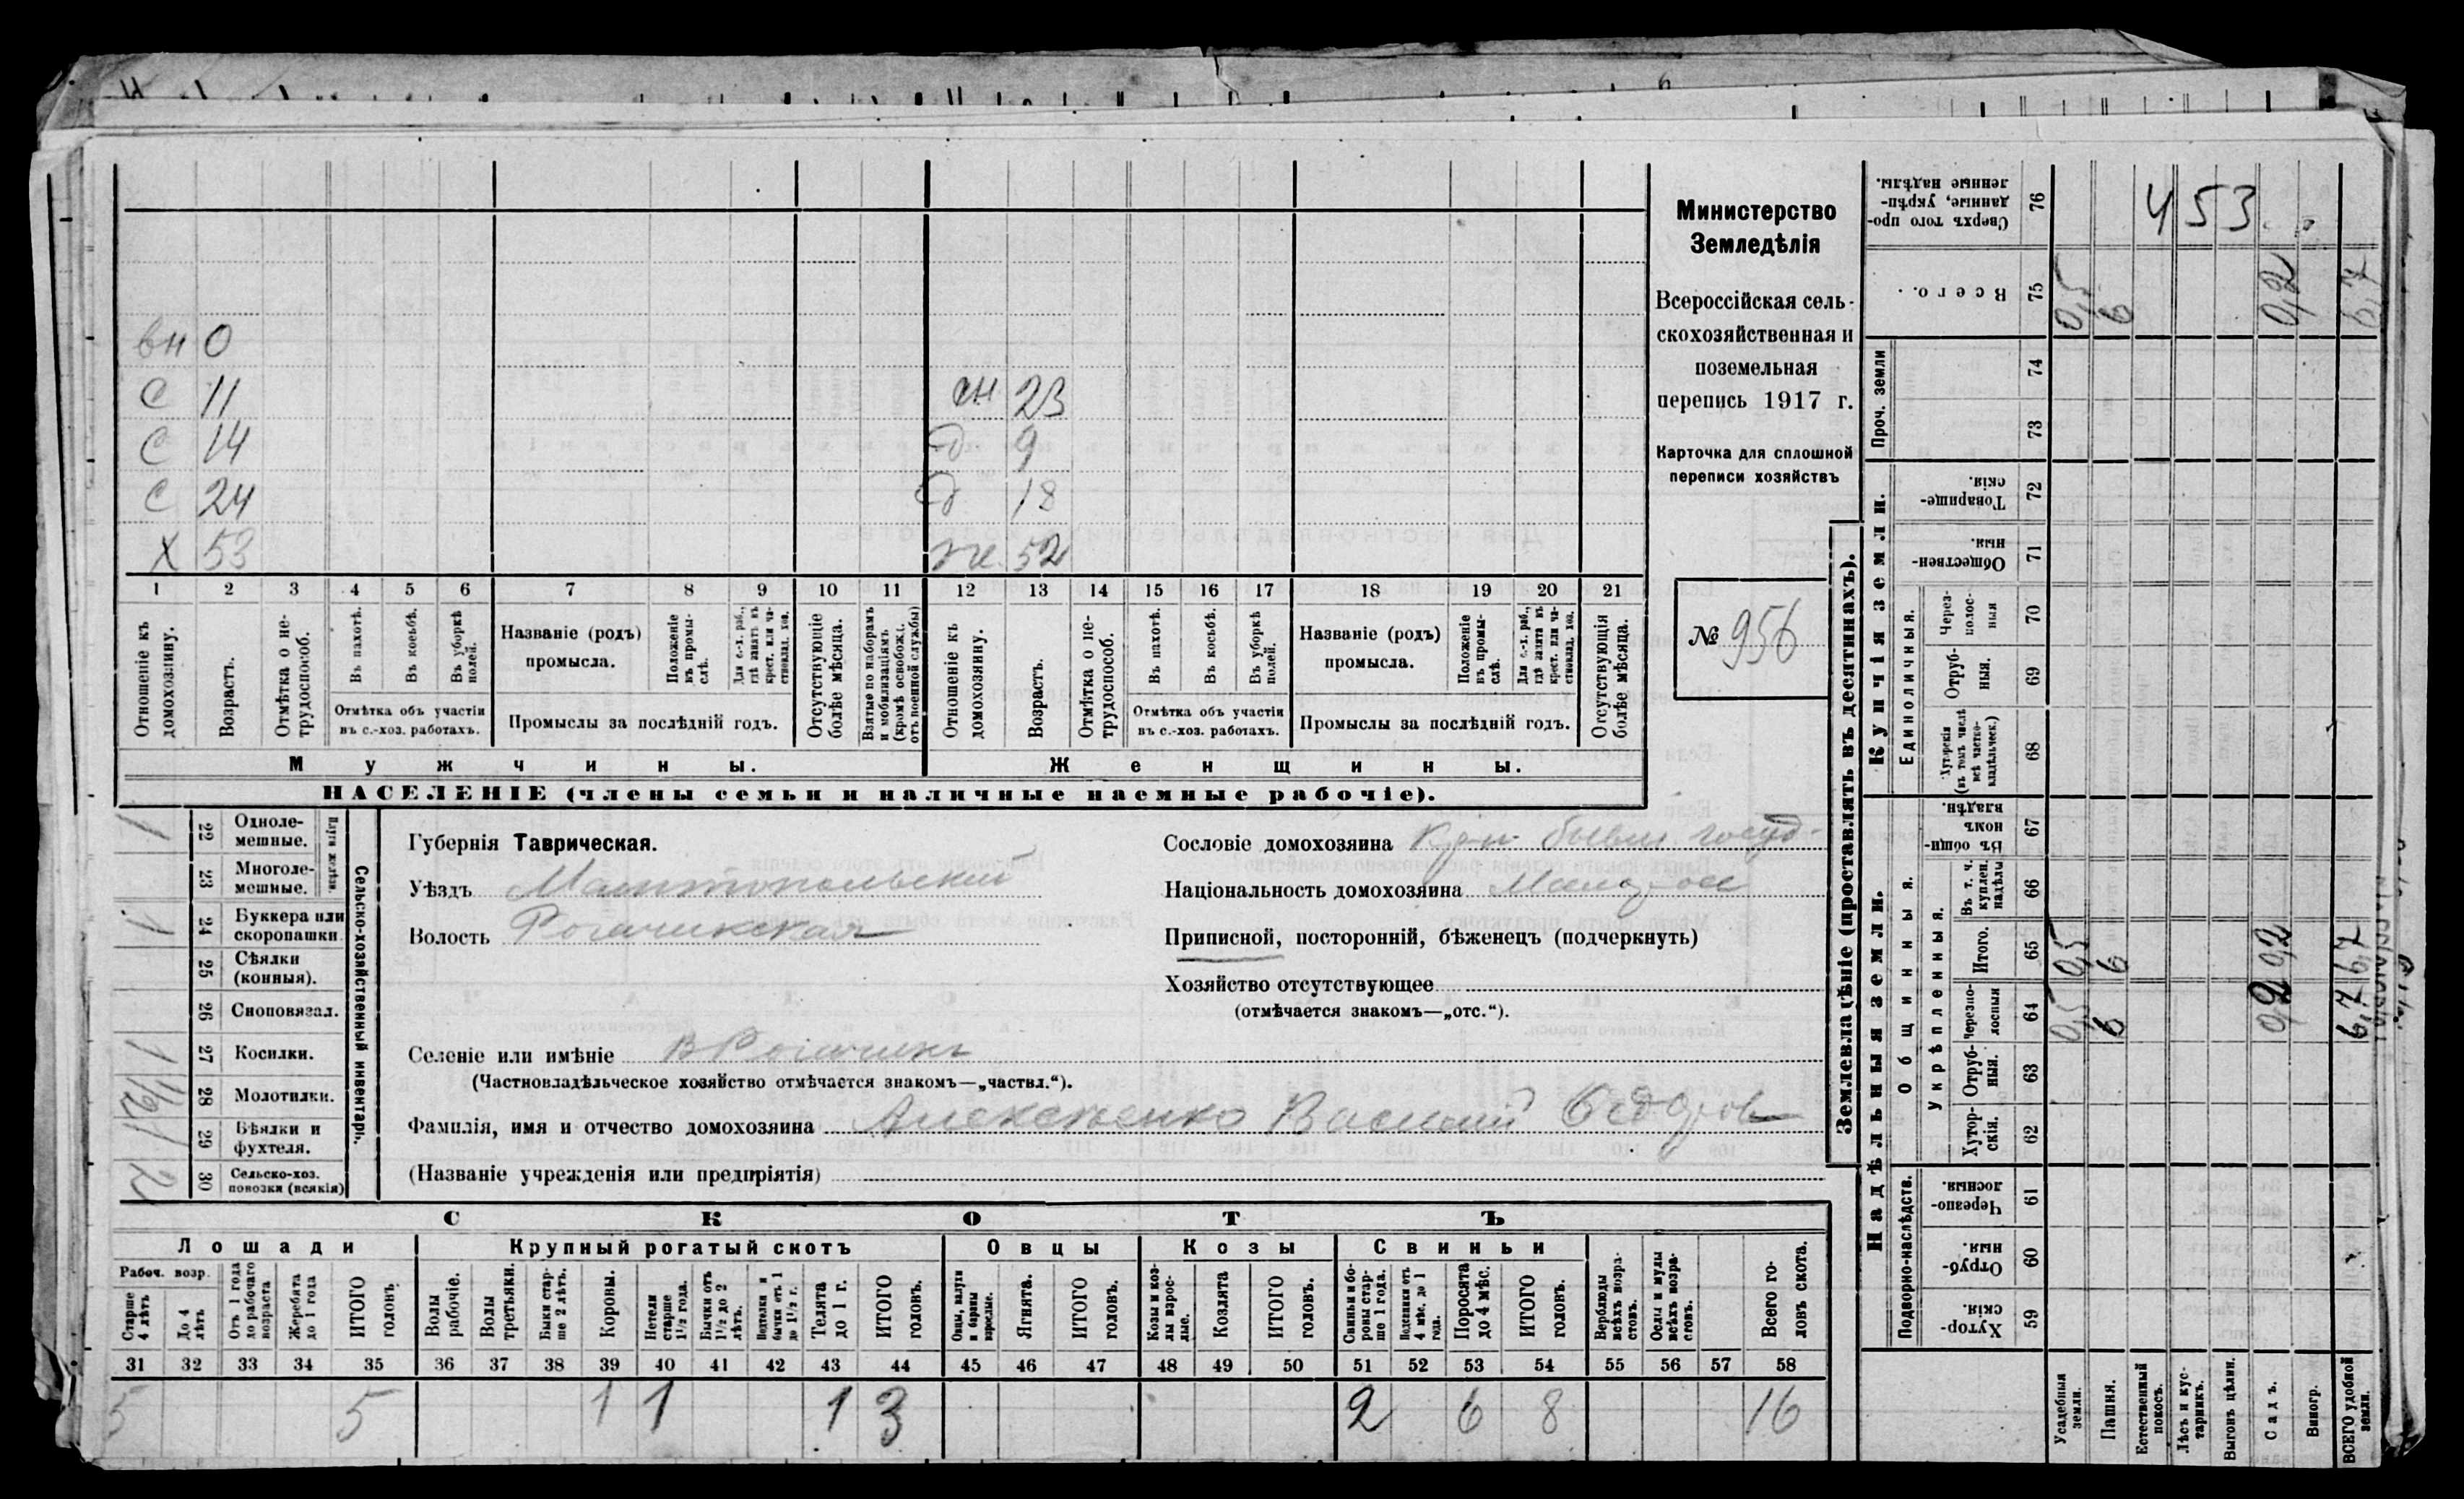 вн 0
С 11 сн 23
С 14 д 9
С 24 д 18
Х 53 же 52
1 2 3 4 5 6 7 8 9 10 11 12 13 14 15 16 17 18 19 20 21
Отношеніе къ домохозяину.
Возрастъ.
Отмѣтка о не-
трудоспособ.
Въ пахотѣ.
Въ косьбѣ.
Въ уборкѣ
полей.
Отмѣтка объ участіи
въ с.-хоз. работахъ.
Названіе (родъ)
промысла.
Положеніе
въ промы-
слѣ.
Для с.-х. раб.,
гдѣ занятъ въ
крест. или ча-
стновлад. хоз.
Промыслы за послѣдній годъ.
Отсутствующіе
болѣе мѣсяца.
Взятые по наборамъ
и мобилизаціямъ
(кромѣ освобожд.
отъ военной службы)
Отношеніе къ
домохозяину.
Возрастъ.
Отмѣтка о не-
трудоспособ.
Въ пахотѣ.
Въ косьбѣ.
Въ уборкѣ
полей.
Отмѣтка объ участіи
въ с.-хоз. работахъ.
Названіе (родъ)
промысла.
Положеніе
въ промы-
слѣ.
Для с.-х. раб.,
гдѣ занята въ
крест. или ча-
стновлад. хоз.
Промыслы за послѣдній годъ.
Отсутствующія
болѣе мѣсяца.
Мужчины.
Женщины.
НАСЕЛЕНІЕ (члены семьи и наличные наемные рабочіе).
Министерство
Земледѣлія
Всероссійская сель-
скохозяйственная и
поземельная
перепись 1917 г.
Карточка для сплошной
переписи хозяйствъ
№ 956
Плуги желѣзн.
1 22 Одноле-
мешные.
23 Многоле-
мешные.
1 24 Буккера или
скоропашки
25 Сѣялки
(конныя).
26 Сноповязал.
1 27 Косилки.
1/2 28 Молотилки.
1 29 Вѣялки и
фухтеля.
2 30 Сельско-хоз.
повозки (всякія)
Сельско-хозяйственный инвентарь.
Губернія Таврическая.
Уѣздъ Мелитопольскій
Волость Рогачикская
Селеніе или имѣніе В Рогачикъ
(Частновладѣльческое хозяйство отмѣчается знакомъ—„частвл.“).
Фамилія, имя и отчество домохозяина Алексѣенко Василій Ѳедоров
(Названіе учрежденія или предпріятія)
Сословіе домохозяина Кр-н бывш. госуд-
Національность домохозяина Малорос
Приписной, посторонній, бѣженецъ (подчеркнуть)
Хозяйство отсутствующее
(отмѣчается знакомъ—„отс.“).
СКОТЪ
Лошади Крупный рогатый скотъ Овцы Козы Свиньи
Рабоч. возр.
Старше
4 лѣтъ
До 4
лѣтъ
Отъ 1 года
до рабочаго
возраста
Жеребята
до 1 года
ИТОГО
головъ
Волы
рабочіе.
Волы
третьяки.
Быки стар-
ше 2 лѣтъ.
Коровы.
Нетели
старше
1½ года.
Бычки отъ
1½ до 2
лѣтъ.
Нетелки и
бычки отъ 1
до 1½ г.
Телята
до 1 г.
ИТОГО
головъ.
Овцы, валухи
и бараны
взрослые.
Ягнята.
ИТОГО
головъ.
Козы и коз-
лы взрос-
лые.
Козлята
ИТОГО
головъ.
Свиньи и бо-
ровы стар-
ше 1 года.
Подсвинки отъ
4 мѣс. до 1
года.
Поросята
до 4 мѣс.
ИТОГО
головъ.
Верблюды
всѣхъ возра-
стовъ.
Ослы и мулы
всѣхъ возра-
стовъ.
Всего го-
ловъ скота.
31 32 33 34 35 36 37 38 39 40 41 42 43 44 45 46 47 48 49 50 51 52 53 54 55 56 57 58
5 5 1 1 1 3 2 6 8 16
Землевладѣніе (проставлять въ десятинахъ).
Надѣльныя земли.
Купчія земли.
Проч. земли
Общинныя.
Укрѣпленныя.
Единоличныя.
Подворно-наслѣдств.
Сверхъ того про-
данные, укрѣп-
ленные надѣлы.
76 453
Всего.
75 0,5 6 0,2 6,7
74
73
Товарище-
скія.
72
Обществен-
ныя.
71
Через-
полос-
ныя
70
Отруб-
ныя.
69
Хуторскія
(въ томъ числѣ
всѣ частно-
владѣльческ.)
68
Въ общи-
номъ
владѣн.
67
Въ т. ч.
куплен.
надѣлы
66
Итого.
65 0,5 6 0,2 6,7
Черезпо-
лосныя
64 0,5 6 0,2 6,7
Отруб-
ныя.
63
Хутор-
скія.
62
Черезпо-
лосныя.
61
Отруб-
ныя.
60
Хутор-
скія.
59
Усадебныя
земли.
Пашня.
Естественный
покосъ.
Лѣсъ и кус-
тарникъ.
Выгонъ цѣлин.
Садъ.
Виногр.
ВСЕГО удобной
земли.